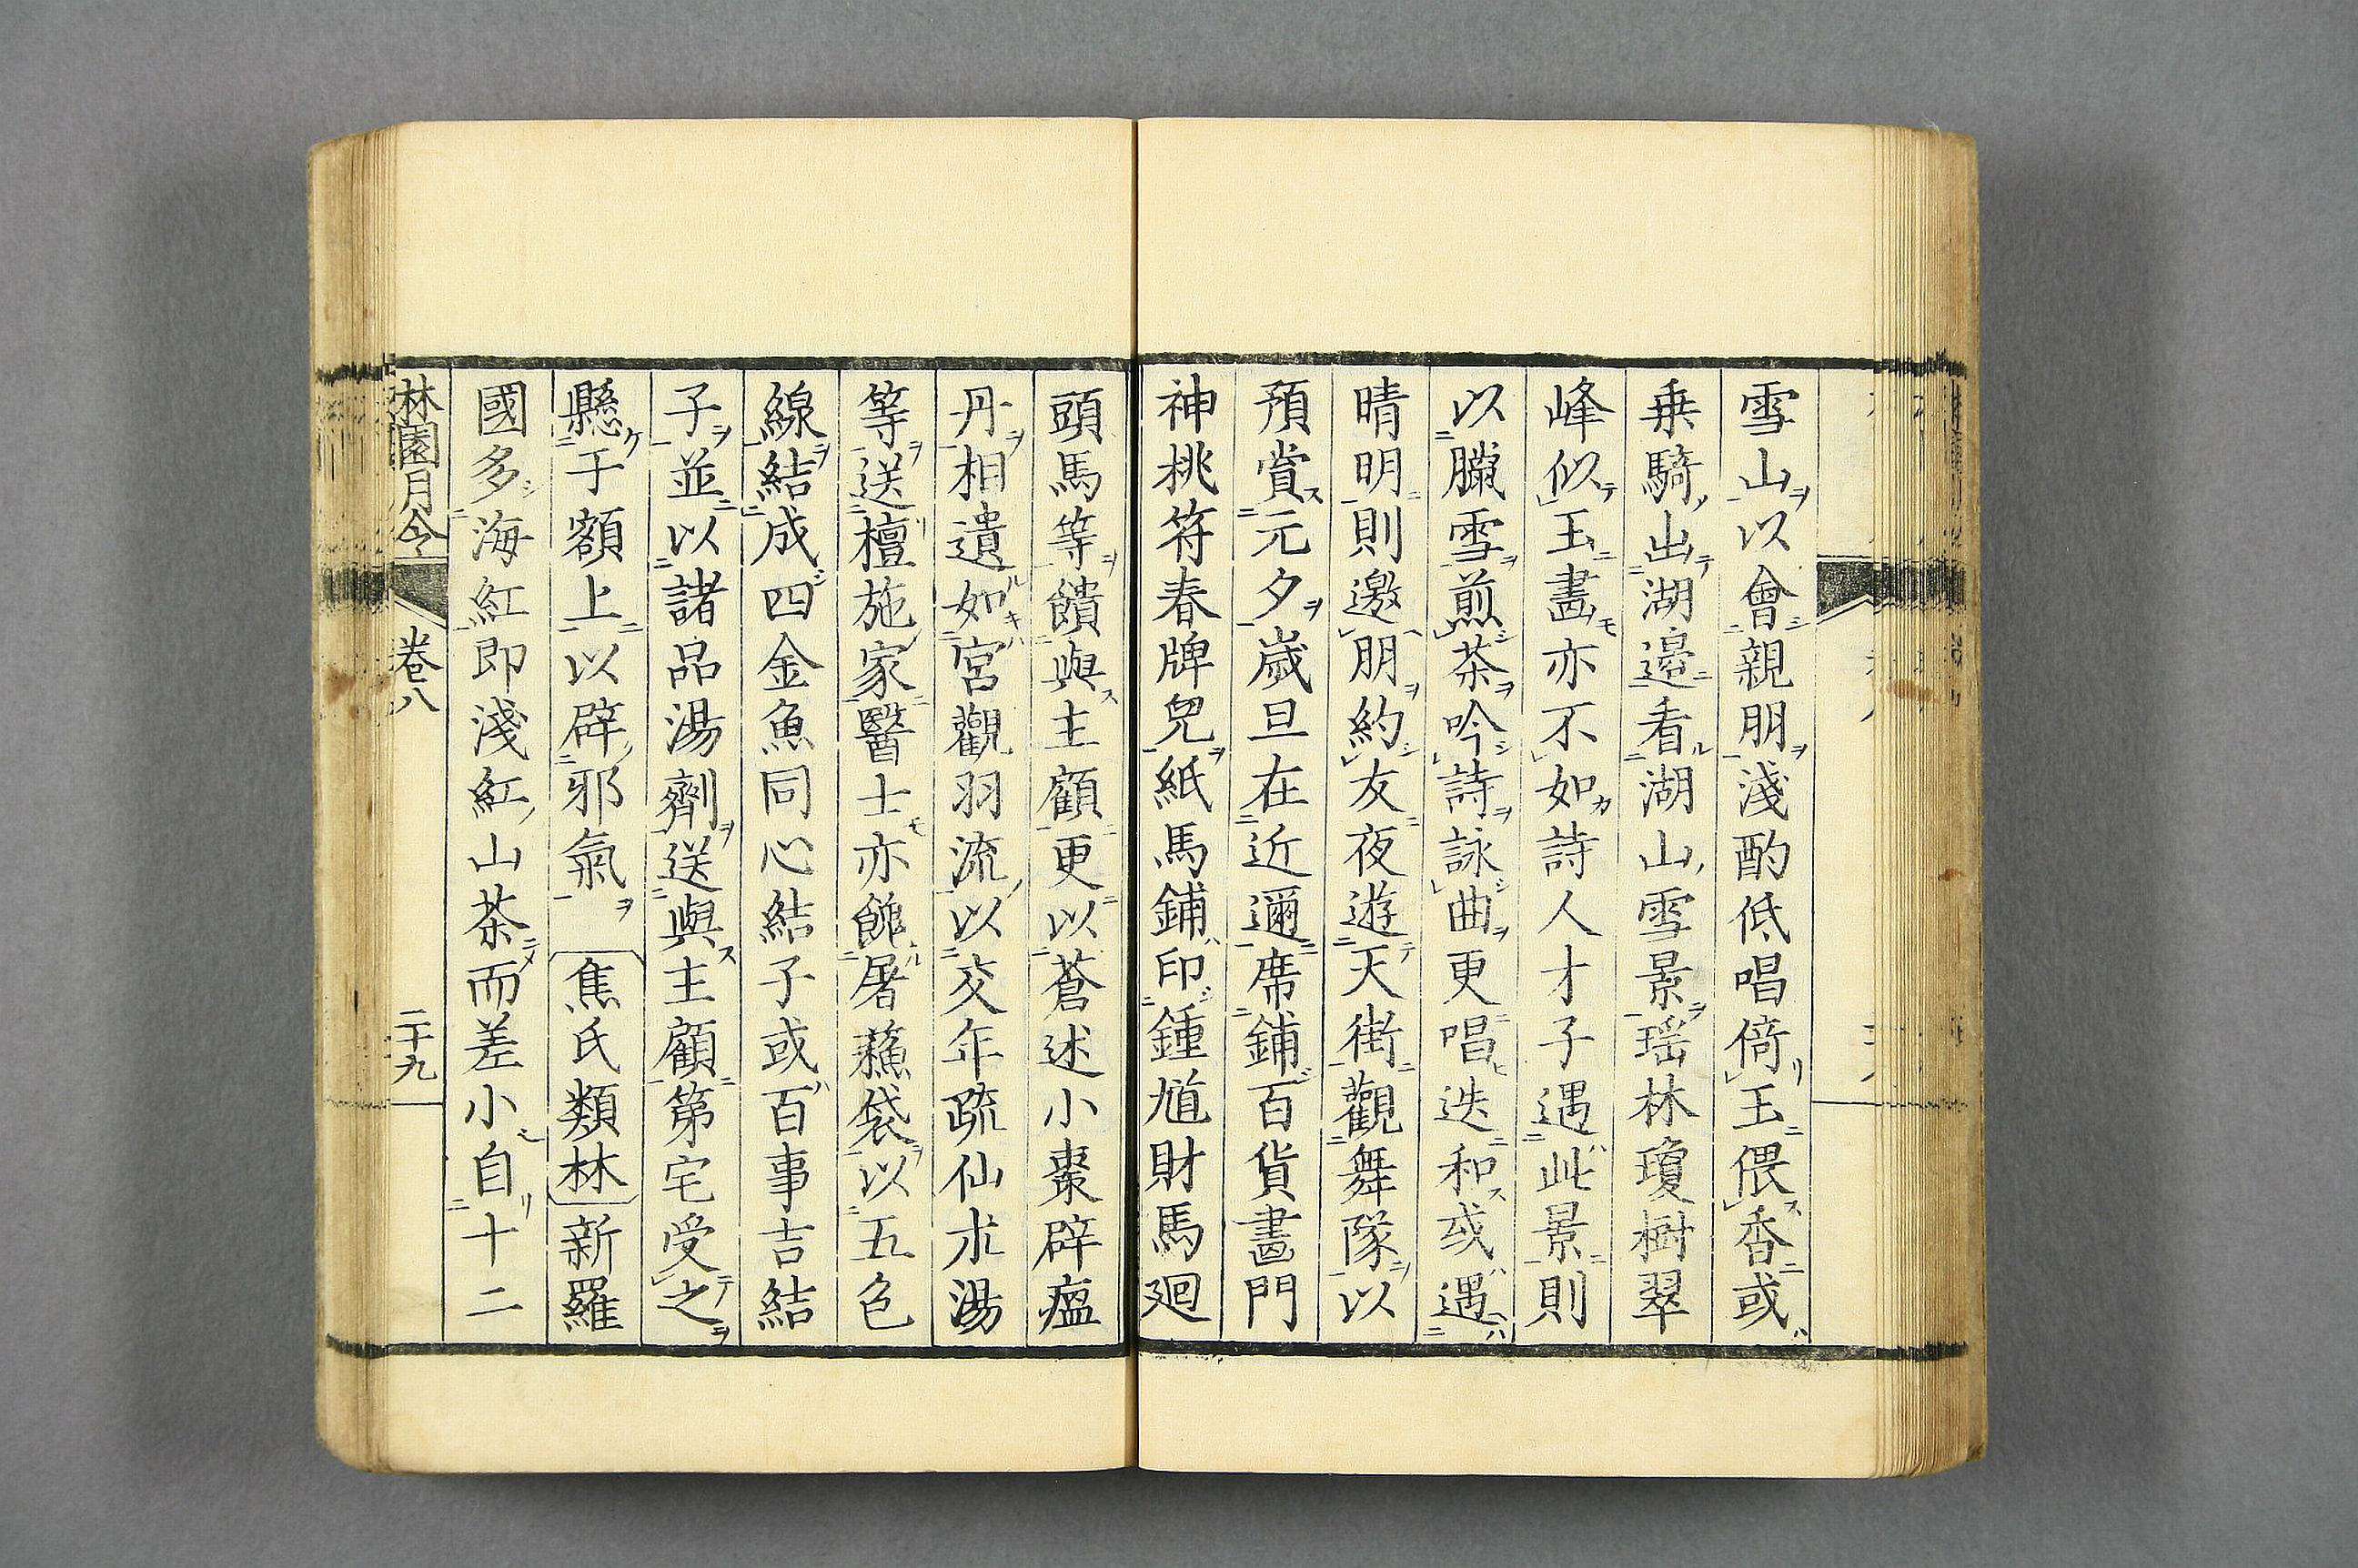 雪山以會親朋淺酌低唱倚玉偎香或
乗騎出湖邊看湖山雪景瑶林瓊樹翠
峰似玉畵亦不如詩人才子遇此景則
以臘雪煎茶吟詩詠曲更唱迭和或遇
晴明則邀朋約友夜遊天街觀舞隊以
預賞元夕歳旦在近邇席鋪百貨畵門
神桃符春牌兒紙馬鋪印鍾馗財馬廻
頭馬等饋與主顧更以蒼述小棗辟瘟
丹相遺如宮觀羽流以交年疏仙朮湯
等送檀施家醫士亦餽屠蘓袋以五色
線結成四金魚同心結子或百事吉結
子並以諸品湯劑送與主顧第宅受之
懸于額上以辟邪氣 焦氏類林 新羅
國多海紅即淺紅山茶而差小自十二
林園月令 卷八 二十九